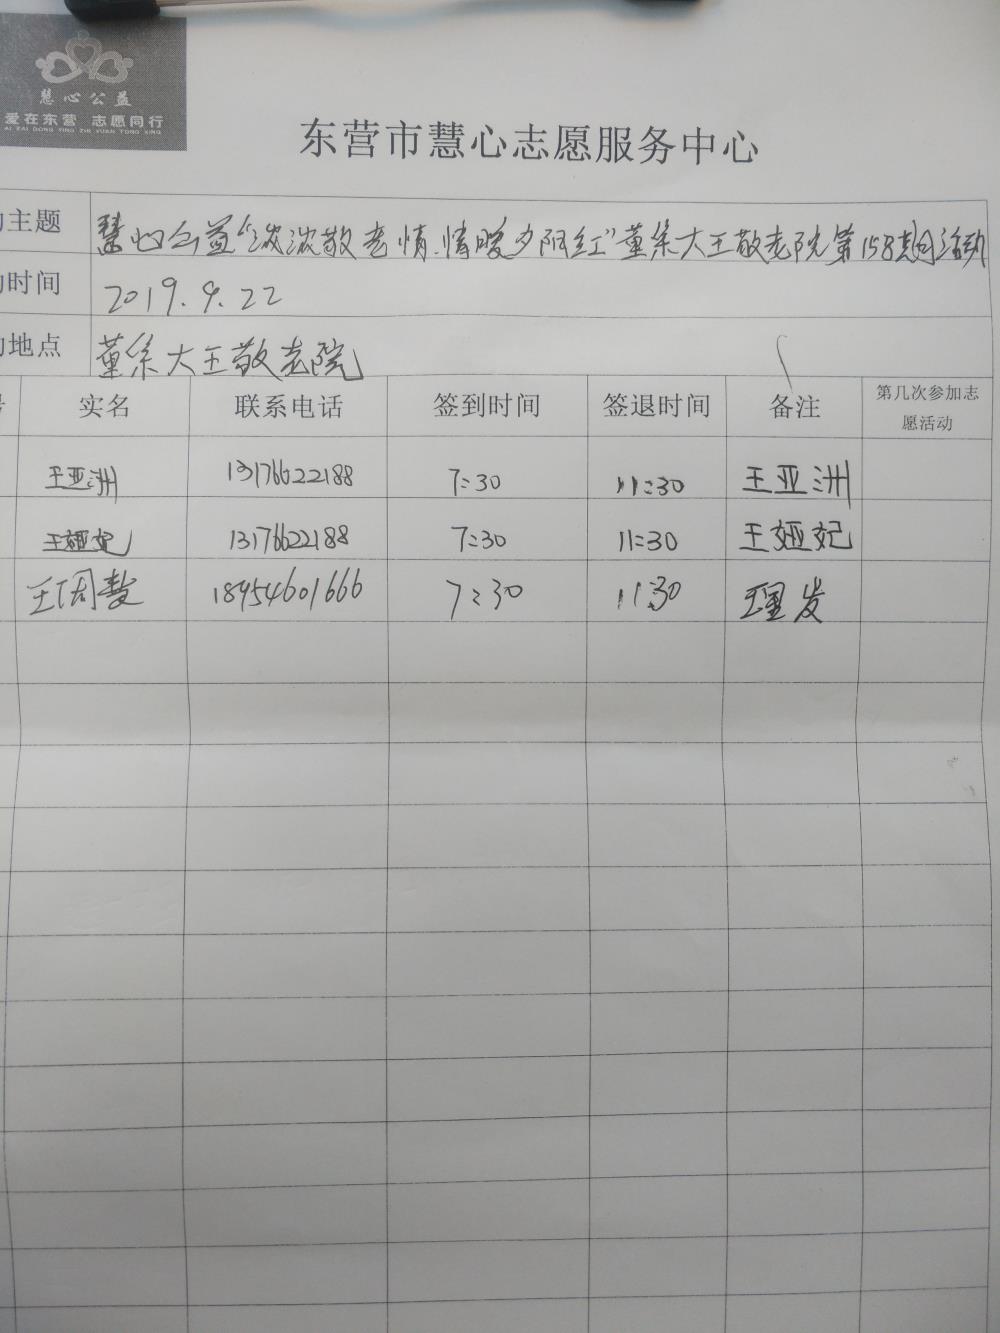 慧心公益
爱在东营 志愿同行
AI ZAI DONG YING ZHI YUAN TONG XING
东营市慧心志愿服务中心
主题 慧心公益“浓浓敬老情.情暖夕阳红”董集大王敬老院第158期活动
时间 2019.9.22
地点 董集大王敬老院
号 实名 联系电话 签到时间 签退时间 备注 第几次参加志
愿活动
王亚洲 13176622188 7:30 11:30 王亚洲
王娅妃 13176622188 7:30 11:30 王娅妃
18954601666 7:30 11:30 理发